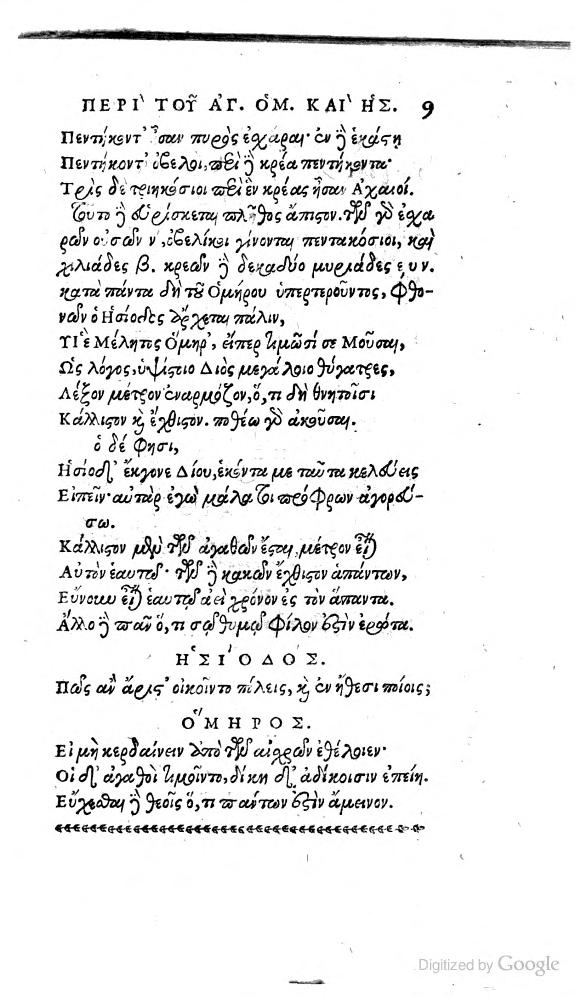 ΠΕΡΙ ΤΟΥ͂ ἈΓ. ὉΜ. ΚΑΙ ἩΣ. 9
Πεντήκοντ' ἦσαν πυρὸς ἐσχάραι· ἐν δὲ ἑκάστῃ
Πεντήκοντ' ὀβελοὶ, περὶ δὲ κρέα πεντήκοντα·
Τρὶς δὲ τριηκόσιοι περὶ ἓν κρέας ἦσαν Ἀχαιοί.
Τοῦτο δὲ εὑρίσκεται πλῆθος ἄπιστον. τῶν γὸ ἐσχα
ρῶν οὐσῶν ν', ὀβελίσκοι γίνονται πεντακόσιοι, καὶ
χιλιάδες β. κρεῶν δὲ δεκαδύο μυριάδες ε, υ ν.
κατὰ πάντα δὴ τοῦ Ὁμήρου ὑπερτεροῦντος, φθο-
νῶν ὁ Ἡσίοδος ἄρχεται πάλιν,
Υἱὲ Μέλητος Ὅμηρ', εἴπερ τιμῶσί σε Μοῦσαι,
Ὡς λόγος, ὑψίστοιο Διὸς μεγάλοιο θύγατρες,
Λέξον μέτρον ἐναρμόζον, ὅ, τι δὴ θνητοῖσι
Κάλλιστον καὶ ἔχθιστον. ποθέω γὸ ἀκοῦσαι.
ὁ δέ φησι,
Ἡσίοδ' ἔκγονε Δίου, ἑκόντα με ταῦτα κελεύεις
Εἰπεῖν· αὐτὰρ ἐγὼ μάλα τοι πρόφρων ἀγορεύ-
σω.
Κάλλιστον μὲν τῶν ἀγαθῶν ἔσται μέτρον εἶναι
Αὐτὸν ἑαυτῷ· τῶν δὲ κακῶν ἔχθιστον ἁπάντων,
Εὔνουν εἶναι ἑαυτῷ ἀεὶ χρόνον ἐς τὸν ἅπαντα.
Ἄλλο δὲ πᾶν ὅ, τι σῷ θυμῷ φίλον ἐστὶν ἐρώτα.
ἩΣΙΌΔΟΣ.
Πῶς ἂν ἄριστ' οἰκοῖντο πόλεις, καὶ ἐν ἤθεσι ποίοις;
ὍΜΗΡΟΣ.
Εἰ μὴ κερδαίνειν ἀπὸ τῶν αἰσχρῶν ἐθέλοιεν·
Οἱ δ' ἀγαθοὶ τιμοῖντο, δίκη δ' ἀδίκοισιν ἐπείη.
Εὔχεσθαι δὲ θεοῖς ὅ, τι πάντων ἐστὶν ἄμεινον.
Digitized by Google